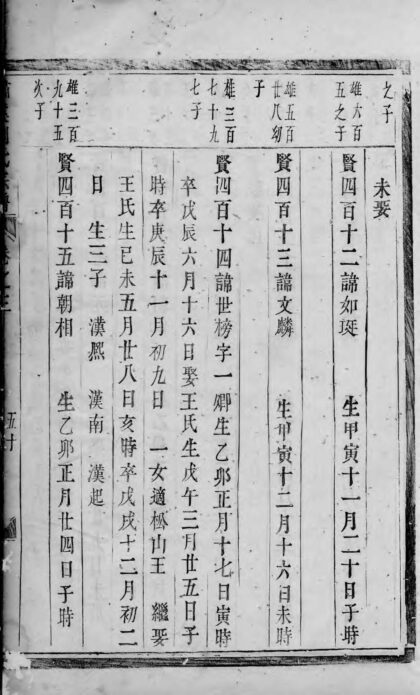 之子
未娶
雄六百
五之子
賢四百十二諱如珽 生甲寅十一月二十日子時
雄五百
廿八幼
子
賢四百十三諱文麟 生甲寅十二月十六日未時
雄三百
七十九
七子
賢四百十四諱世榜字一卿生乙卯正月十七日寅時
卒戊辰六月十六日娶王氏生戊午三月廿五日子
時卒庚辰十一月初九日 一女適松山王 繼娶
王氏生己未五月廿八日亥時卒戊戌十二月初二
日 生三子 漢熙 漢南 漢起
雄三百
九十五
次子
賢四百十五諱朝相 生乙卯正月廿四日子時
五十